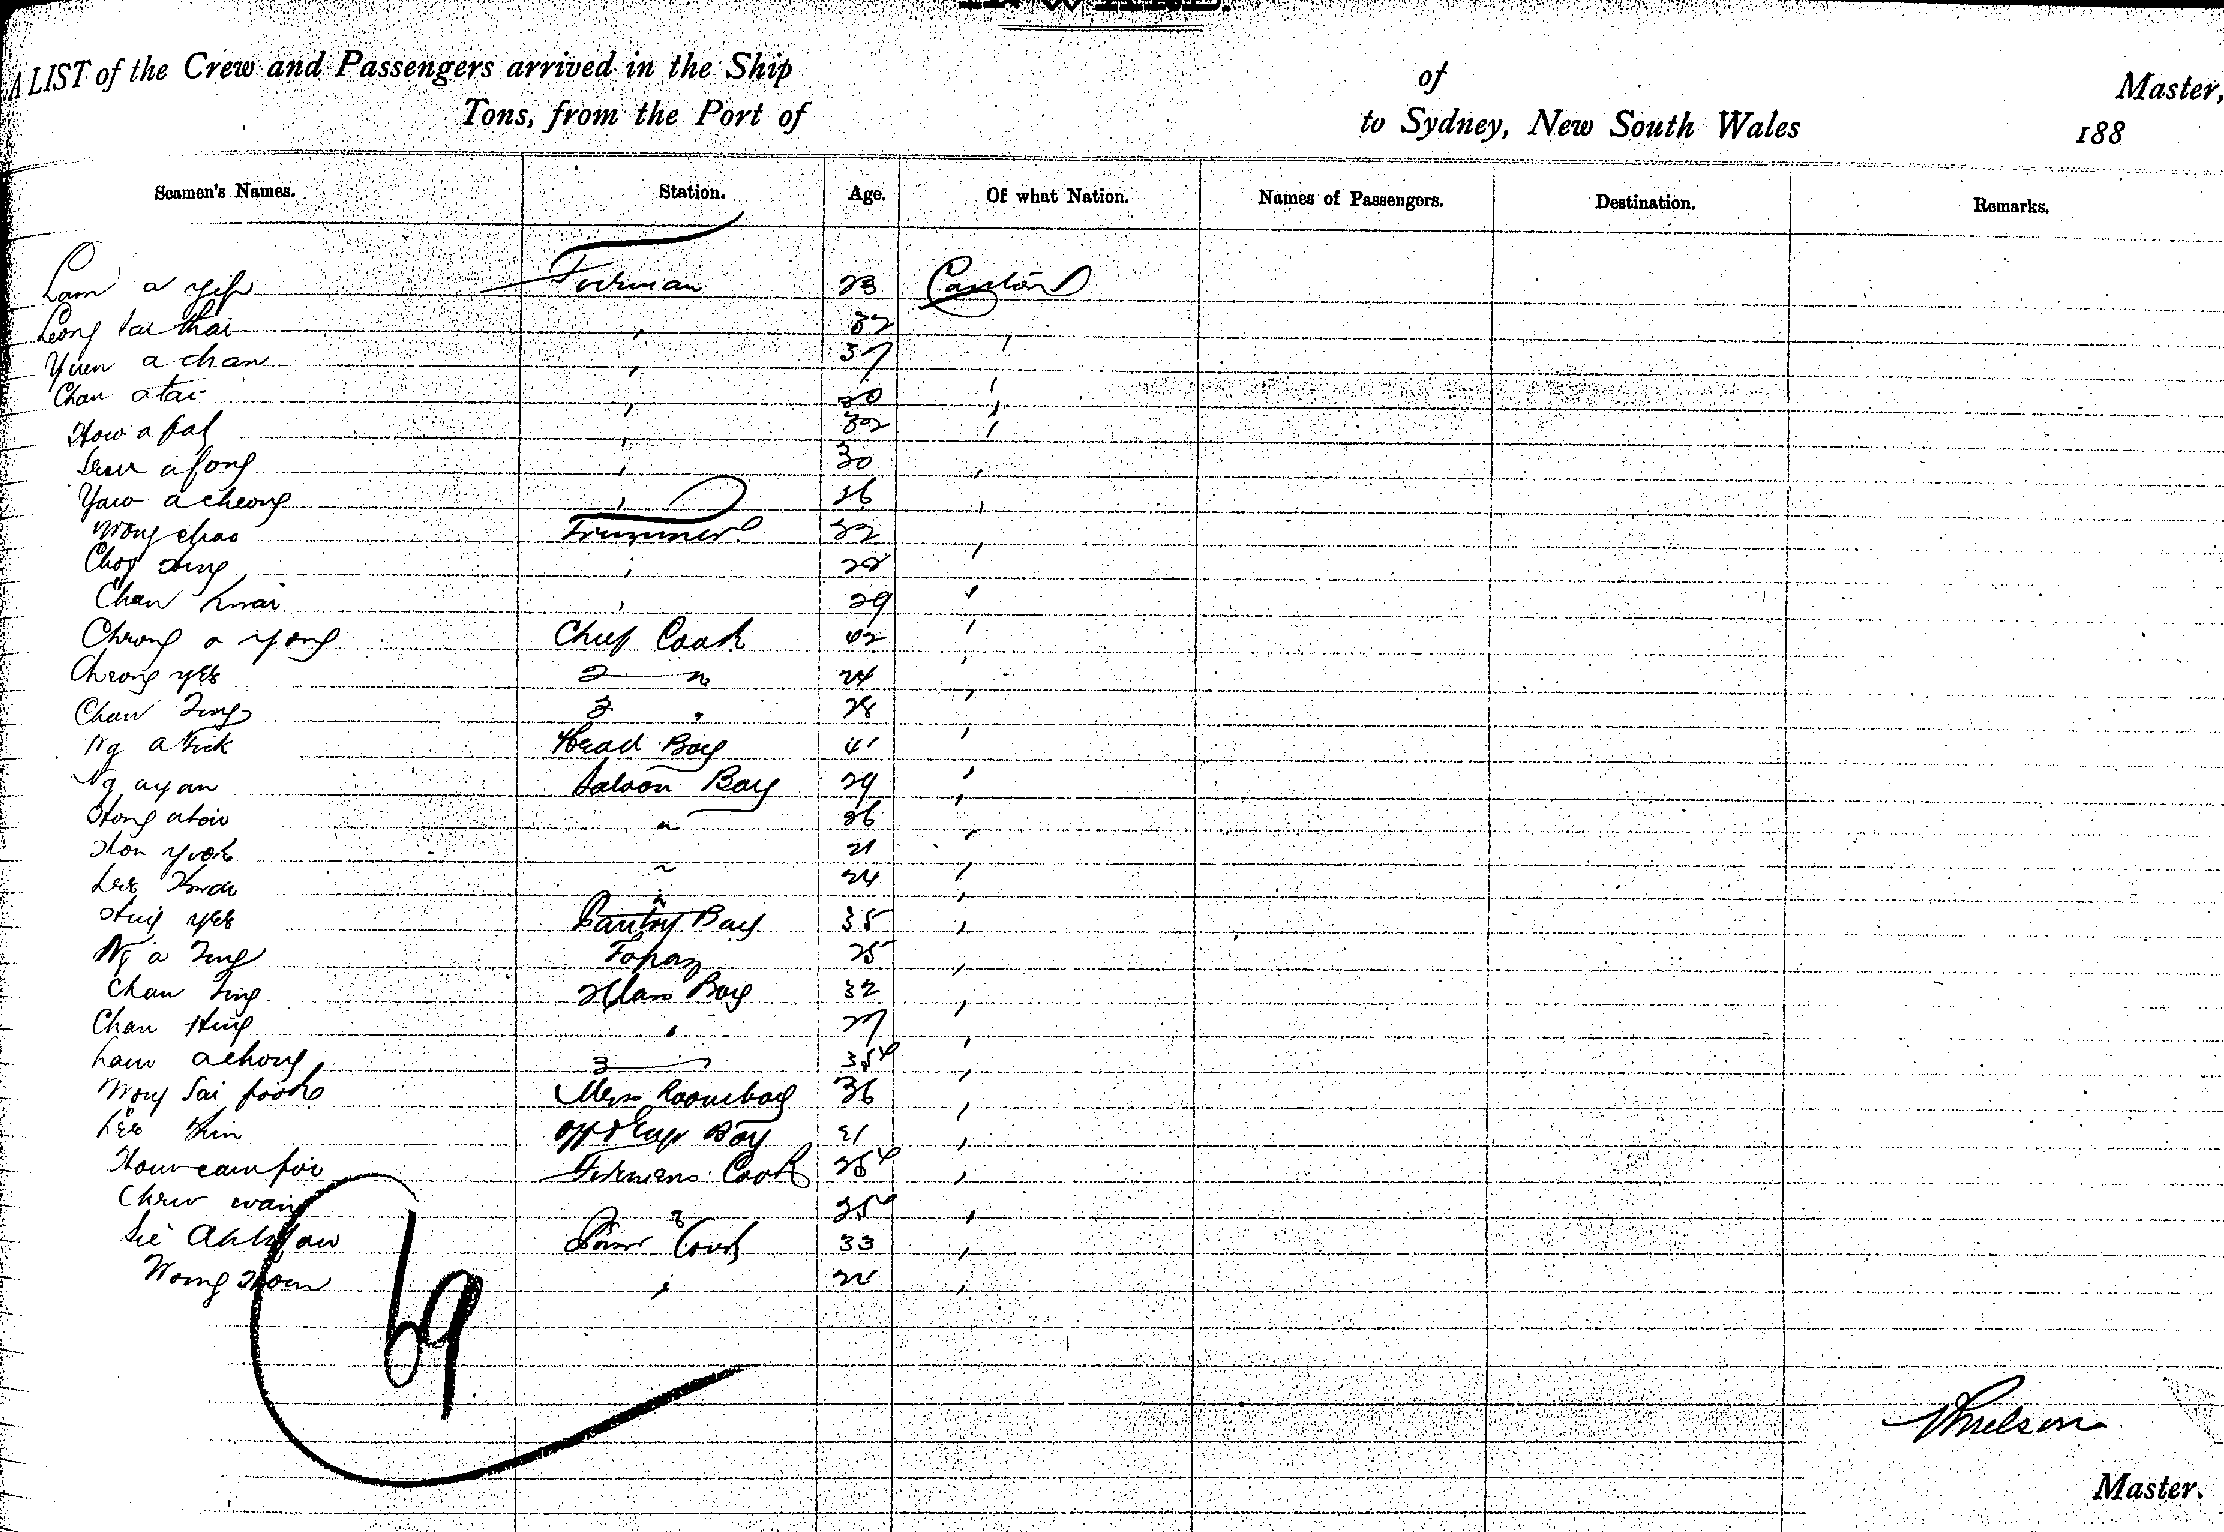 A LIST of the Crew and Passengers arrived in the Ship of Master,
Tons, from the Port of to Sydney, New South Wales 188
Seamen's Names. Station. Age. Of what Nation. Names of Passengers. Destination. Remarks.
Lam a yip Fireman 23 Canton
Leong Sai thai , 32 ,
Yuen a chan , 37 ,
Chan atai , 30 ,
How a fat , 32 ,
a fong , 30 ,
Yaw a cheong , 26 ,
Wong chao Trimmer 32 ,
Choy , 22 ,
Chan , 29 ,
Cheong a yong Chief Cook 42 ,
Cheong yee 2 " 24 ,
Chan Ting 3 " 28 ,
Ng a Kick Head Boy 41 ,
Ng ayan Saloon Boy 29 ,
Hong atoi " 36 ,
Hon " 21 ,
Lee " 24 ,
Hing yee Pantry Boy 35 ,
Ng a Ting Topaz 25 ,
Chan Ting 2 Class Boy 32 ,
Chan Hing , 27 ,
Lam achong 3 35 ,
Wong Sai fook Mess Room boy 36 ,
Lee Boy 21 ,
Firemens Cook 25 ,
Chew 2 25 ,
Cook 33 ,
Wong , ,
69
Master.